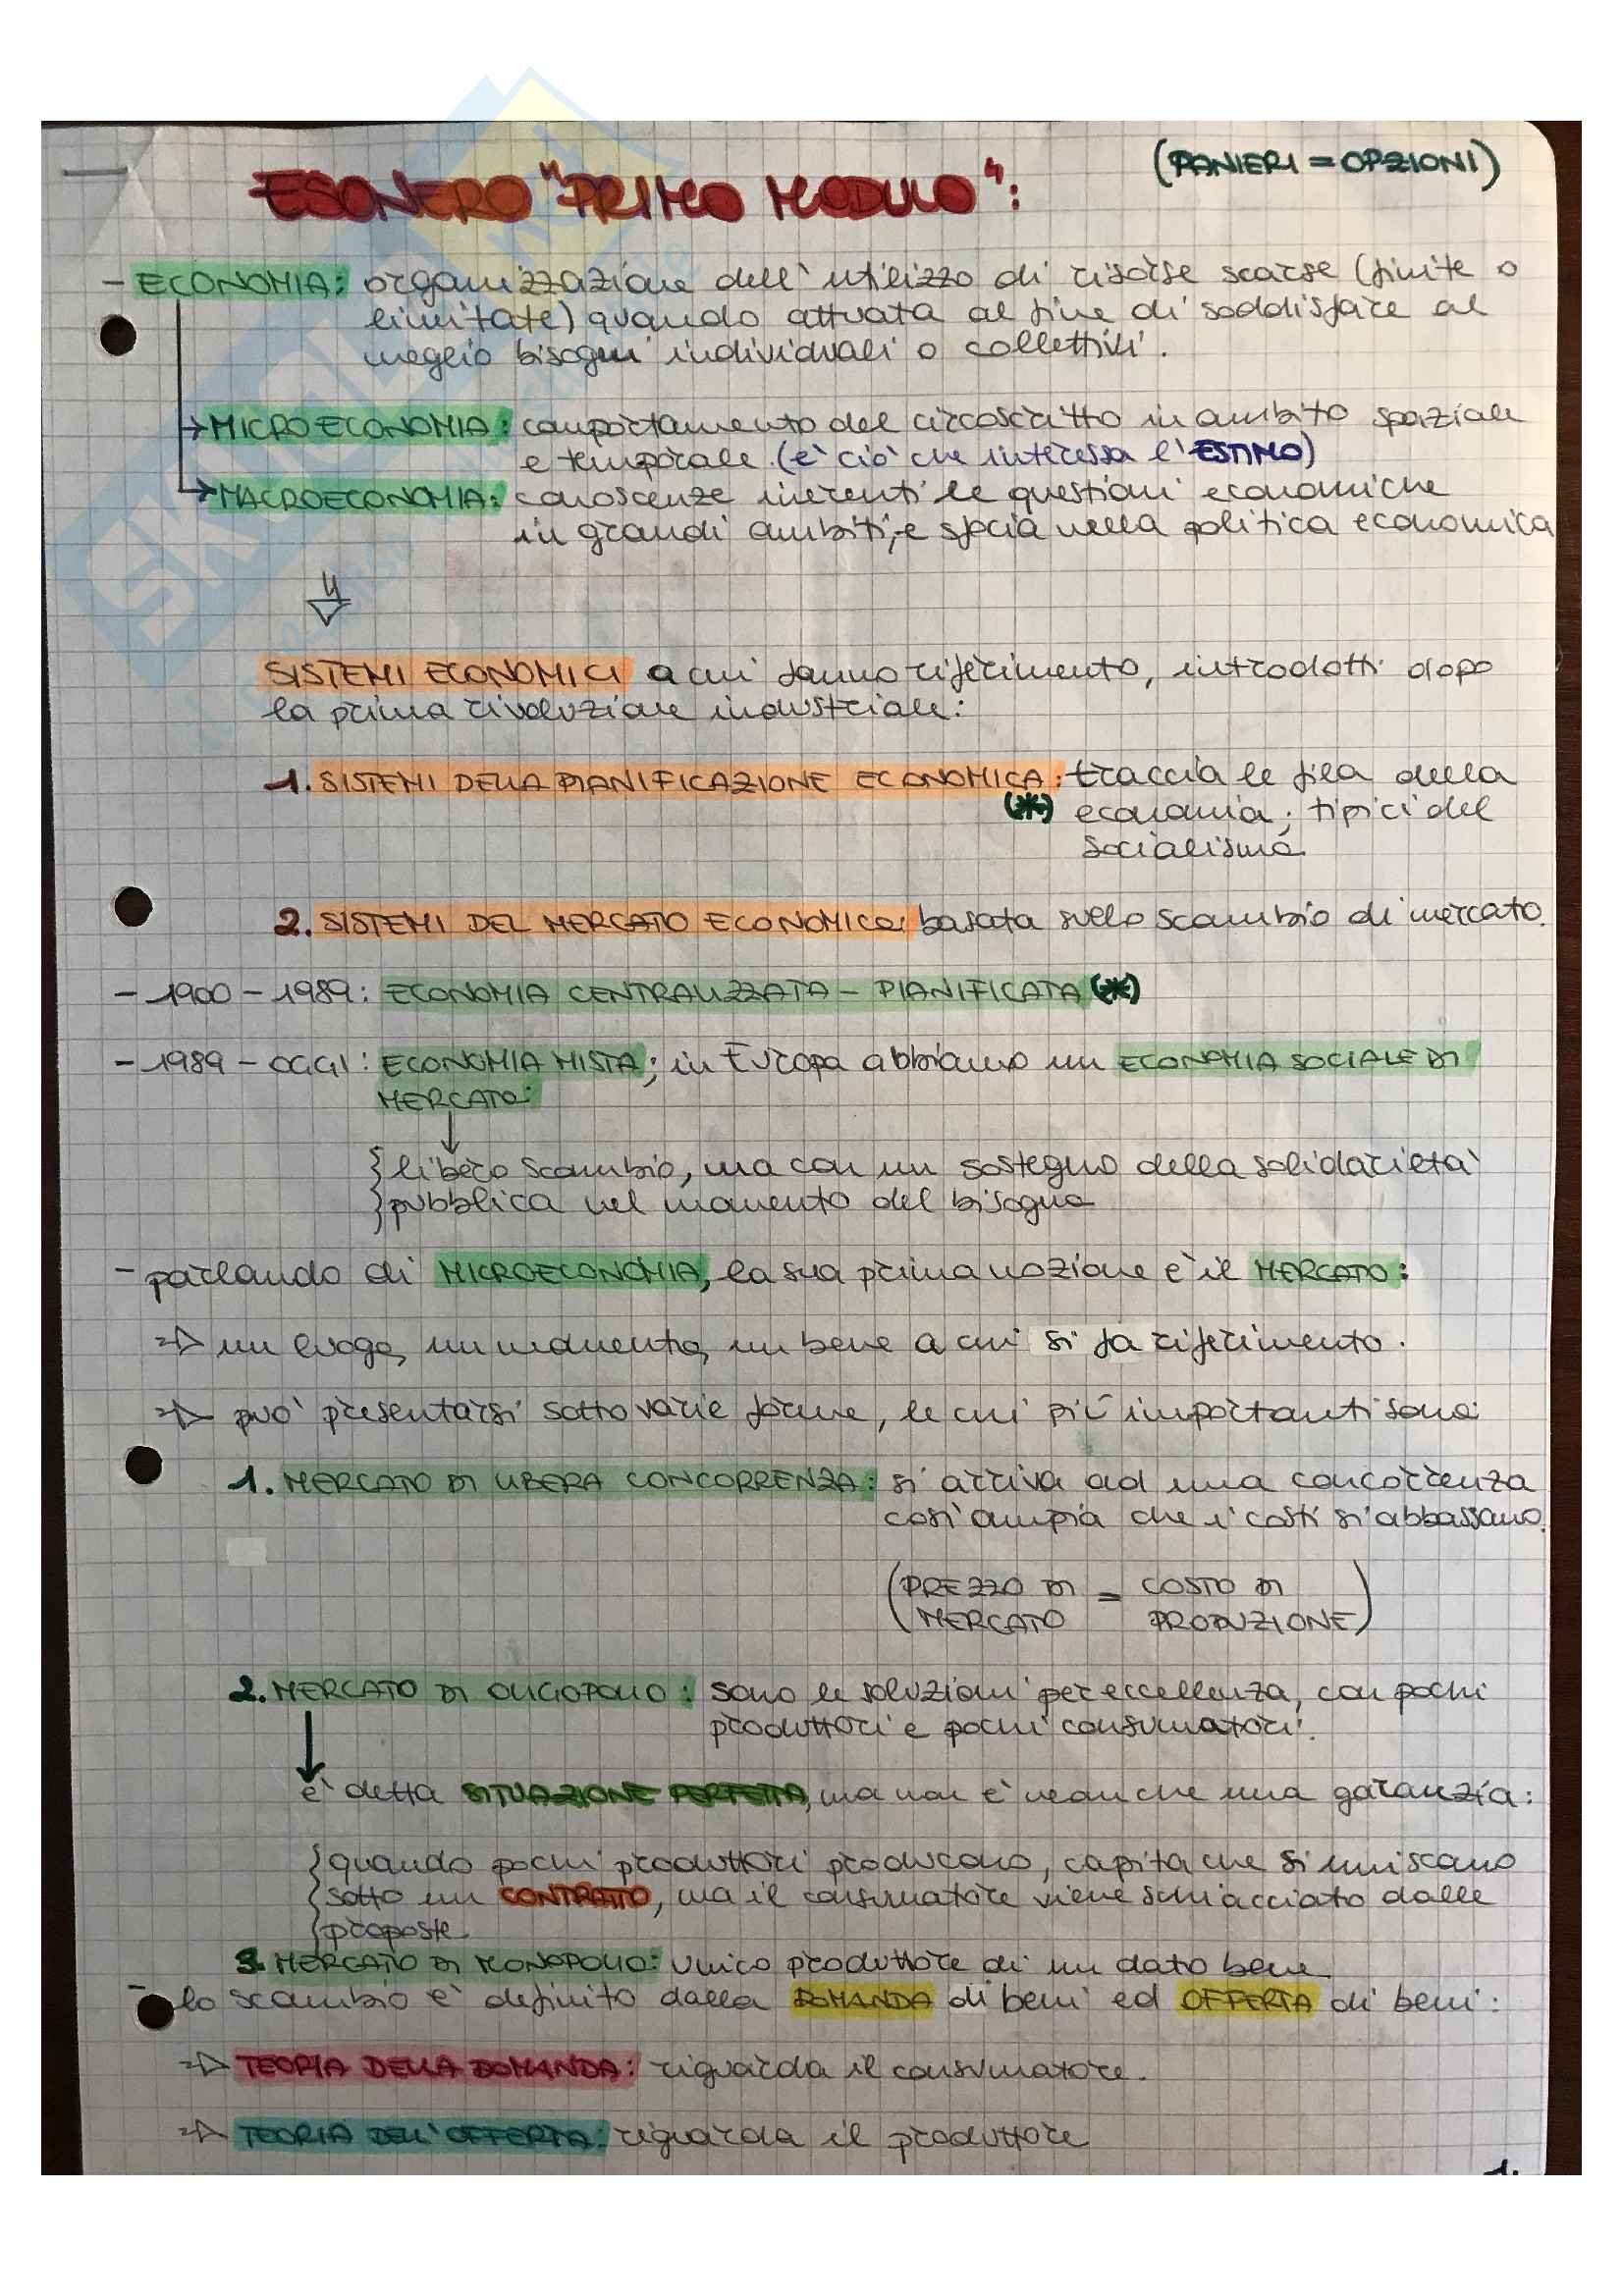 (PANIERI = OPZIONI)
ESONERO "PRIMO MODULO":
- ECONOMIA: organizzazione dell'utilizzo di risorse scarse (finite o
limitate) quando attuata al fine di soddisfare al
meglio bisogni individuali o collettivi.
→ MICROECONOMIA: comportamento del circoscritto in ambito spaziale
e temporale. (è ciò che interessa l'ESTIMO)
→ MACROECONOMIA: conoscenze inerenti le questioni economiche
in grandi ambiti, e sfocia nella politica economica
SISTEMI ECONOMICI a cui fanno riferimento, introdotti dopo
la prima rivoluzione industriale:
1. SISTEMI DELLA PIANIFICAZIONE ECONOMICA: traccia le fila della
(*) economia; tipici del
socialismo.
2. SISTEMI DEL MERCATO ECONOMICO: basata sullo scambio di mercato.
- 1900 - 1989: ECONOMIA CENTRALIZZATA - PIANIFICATA (*)
- 1989 - OGGI: ECONOMIA MISTA; in Europa abbiamo un ECONOMIA SOCIALE DI
MERCATO:
libero scambio, ma con un sostegno della solidarietà
pubblica nel momento del bisogno
- parlando di MICROECONOMIA, la sua prima nozione è il MERCATO:
⇒ un luogo, un momento, un bene a cui si fa riferimento.
⇒ può presentarsi sotto varie forme, le cui più importanti sono:
1. MERCATO DI LIBERA CONCORRENZA: si arriva ad una concorrenza
così ampia che i costi si abbassano.
(PREZZO DI = COSTO DI
MERCATO PRODUZIONE)
2. MERCATO DI OLIGOPOLIO: sono le soluzioni per eccellenza, con pochi
produttori e pochi consumatori.
è detta SITUAZIONE PERFETTA, ma non è neanche una garanzia:
quando pochi produttori producono, capita che si uniscano
sotto un CONTRATO, ma il consumatore viene schiacciato dalle
proposte.
3. MERCATO DI MONOPOLIO: unico produttore di un dato bene
- lo scambio è definito dalla DOMANDA di beni ed OFFERTA di beni:
⇒ TEORIA DELLA DOMANDA: riguarda il consumatore.
⇒ TEORIA DELL'OFFERTA: riguarda il produttore
1.